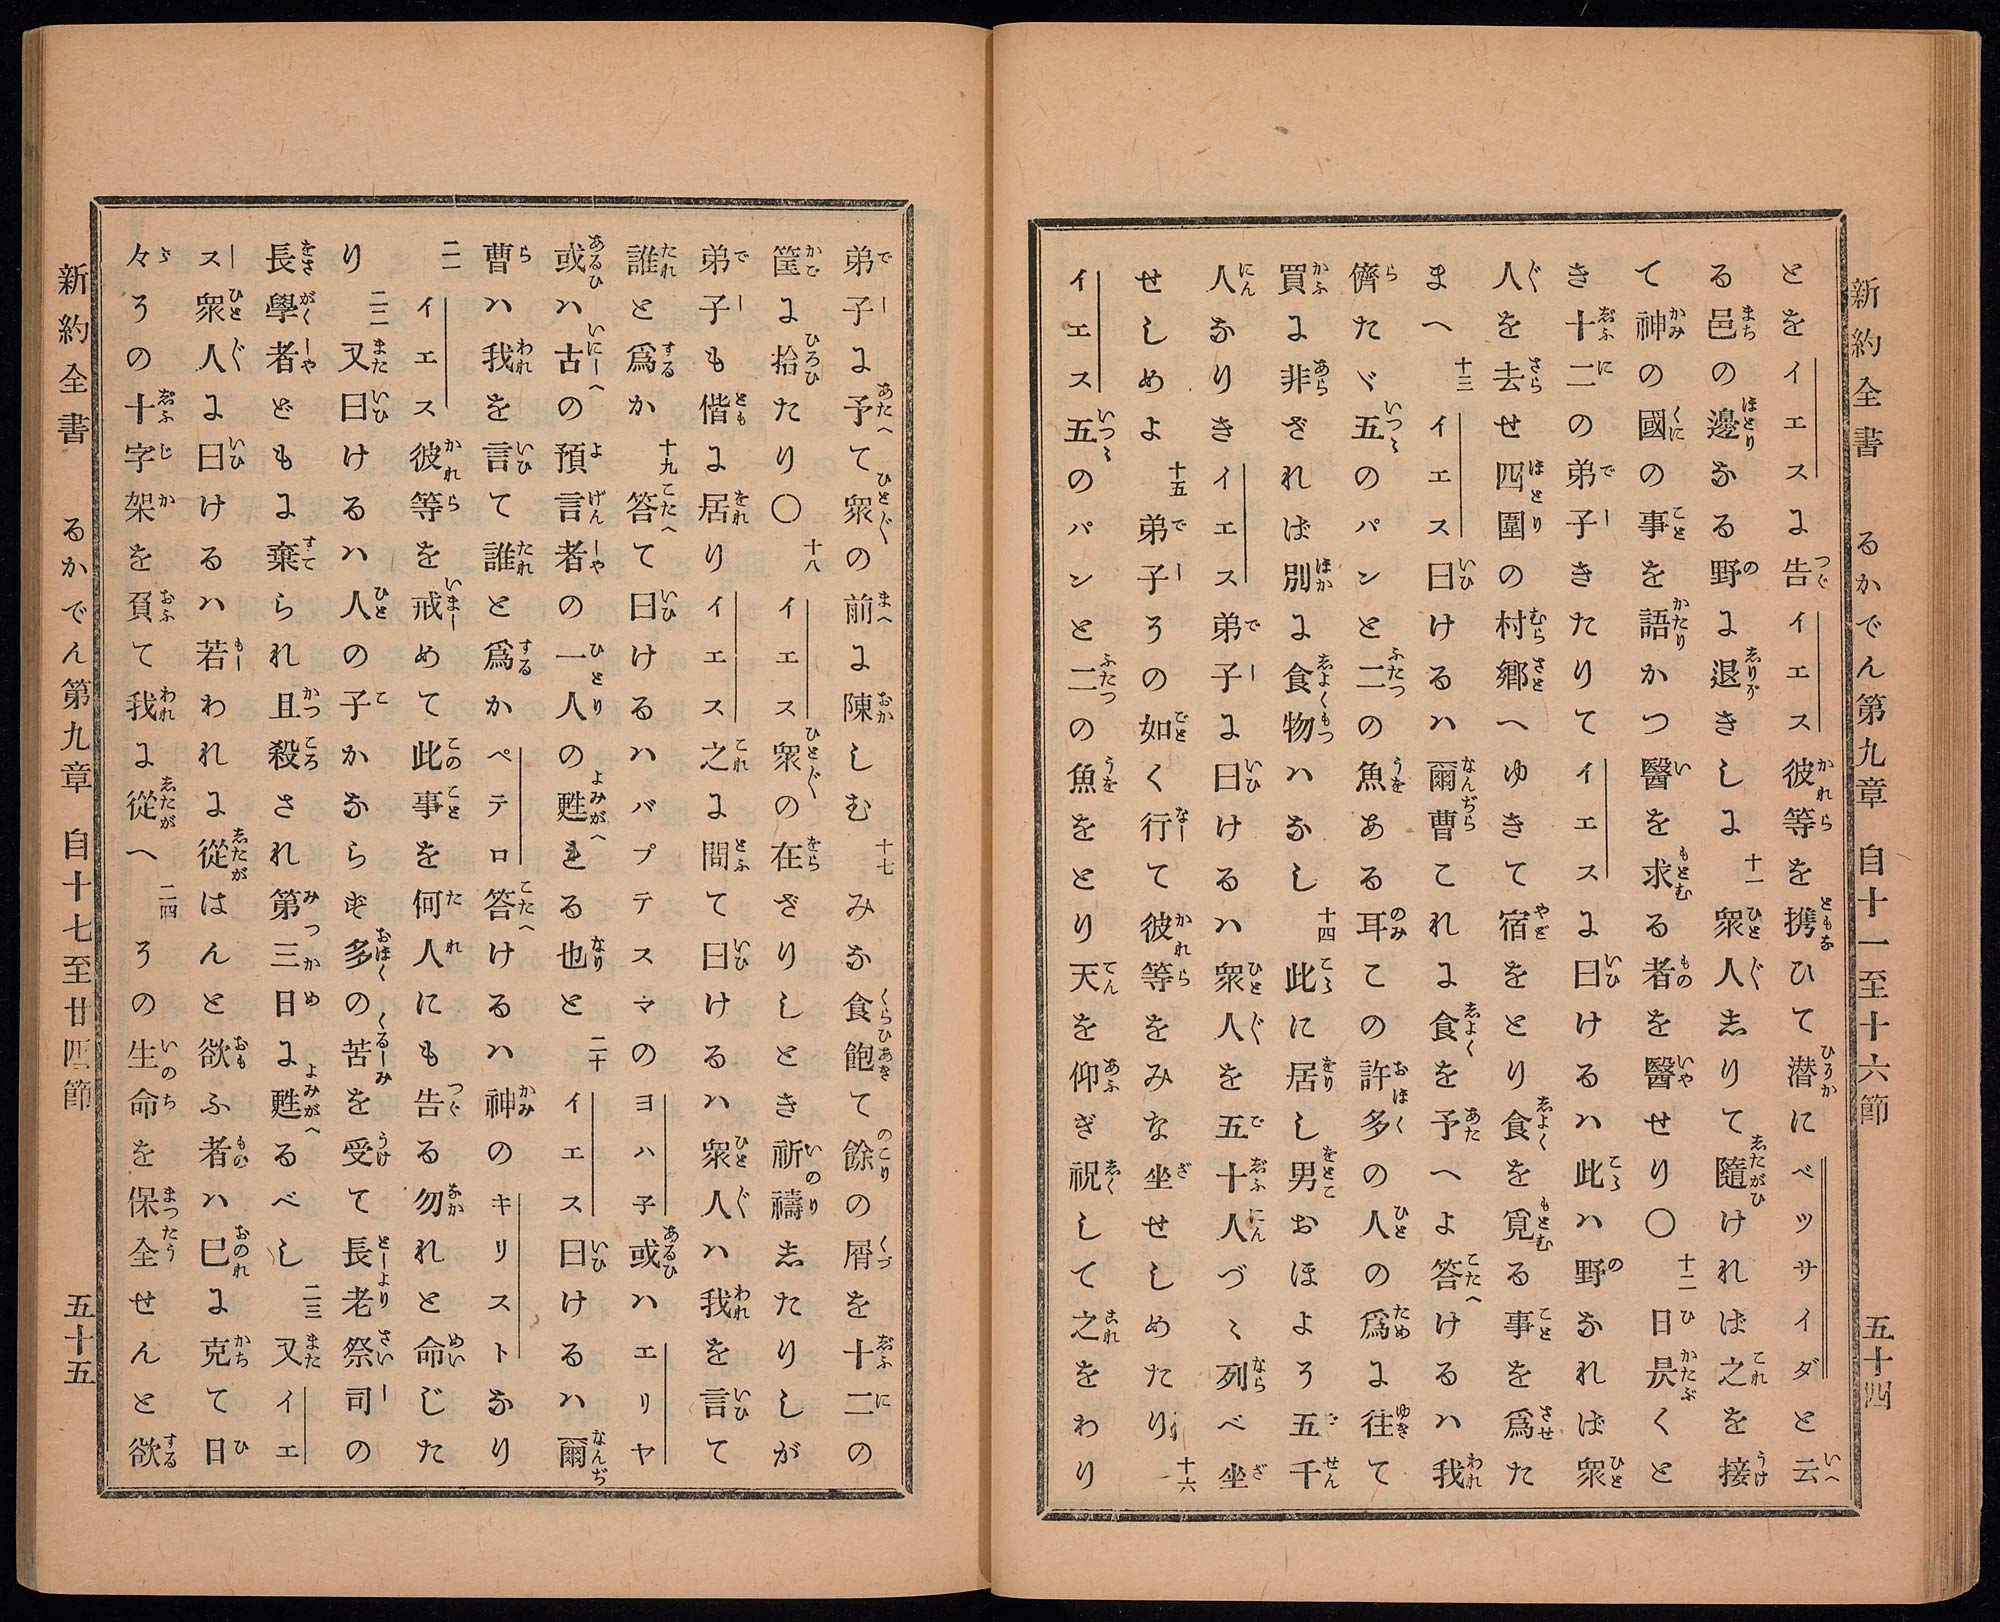 新約全書 るかでん第九章 自十一至十六節 五十四
とをイエスに告イエス彼等を携ひて潜にベツサイダと云
る邑の邊なる野に退きしに 十一 衆人志りて隨ければ之を接
て神の國の事を語かつ醫を求る者を醫せり〇 十二 日昃くと
き十二の弟子きたりてイエスに曰けるハ此ハ野なれば衆
人を去せ四圍の村鄕へゆきて宿をとり食を覓る事を爲た
まへ 十三 イエス曰けるハ爾曹これに食を予へよ答けるハ我
儕たゞ五のパンと二の魚ある耳この許多の人の爲に往て
買に非ざれば別に食物ハなし 十四 此に居し男おほよそ五千
人なりきイエス弟子に曰けるハ衆人を五十人づゝ列べ坐
せしめよ 十五 弟子その如く行て彼等をみな坐せしめたり 十六
イエス五のパンと二の魚をとり天を仰ぎ祝して之をわり
弟子に予て衆の前に陳しむ 十七 みな食飽て餘の屑を十二の
筐に拾たり〇 十八 イエス衆の在ざりしとき祈禱志たりしが
弟子も偕に居りイエス之に問て曰けるハ衆人ハ我を言て
誰と爲か 十九 答て曰けるハバプテスマのヨハ子或ハエリヤ
或ハ古の預言者の一人の甦れる也と 二十 イエス曰けるハ爾
曹ハ我を言て誰と爲かペテロ答けるハ神のキリストなり
二一 イエス彼等を戒めて此事を何人にも告る勿れと命じた
り 二二 又曰けるハ人の子かならず多の苦を受て長老祭司の
長學者どもに棄られ且殺され第三日に甦るべし 二三 又イエ
ス衆人に曰けるハ若われに從はんと欲ふ者ハ己に克て日
々その十字架を負て我に從へ 二四 その生命を保全せんと欲
新約全書 るかでん第九章 自十七至廿四節 五十五